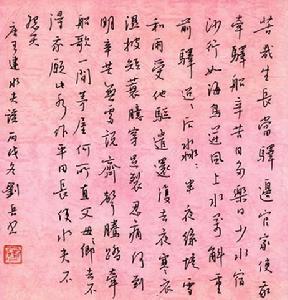 苦哉生長當驛邊官家使我
牽驛船辛苦日多樂日少水宿
沙行如海鳥逆風上水萬斛重
前驛迢迢後淼淼半夜緣堤雪
和雨受他驅遣還復去夜寒衣
濕披短蓑臆穿足裂忍痛何到
明辛苦無處說齊聲騰踏牽
船歌一間茅屋何所直父母之鄉去不
得我願此水作平田長使水夫不
怨天
唐王建水夫謠丙戌冬劉